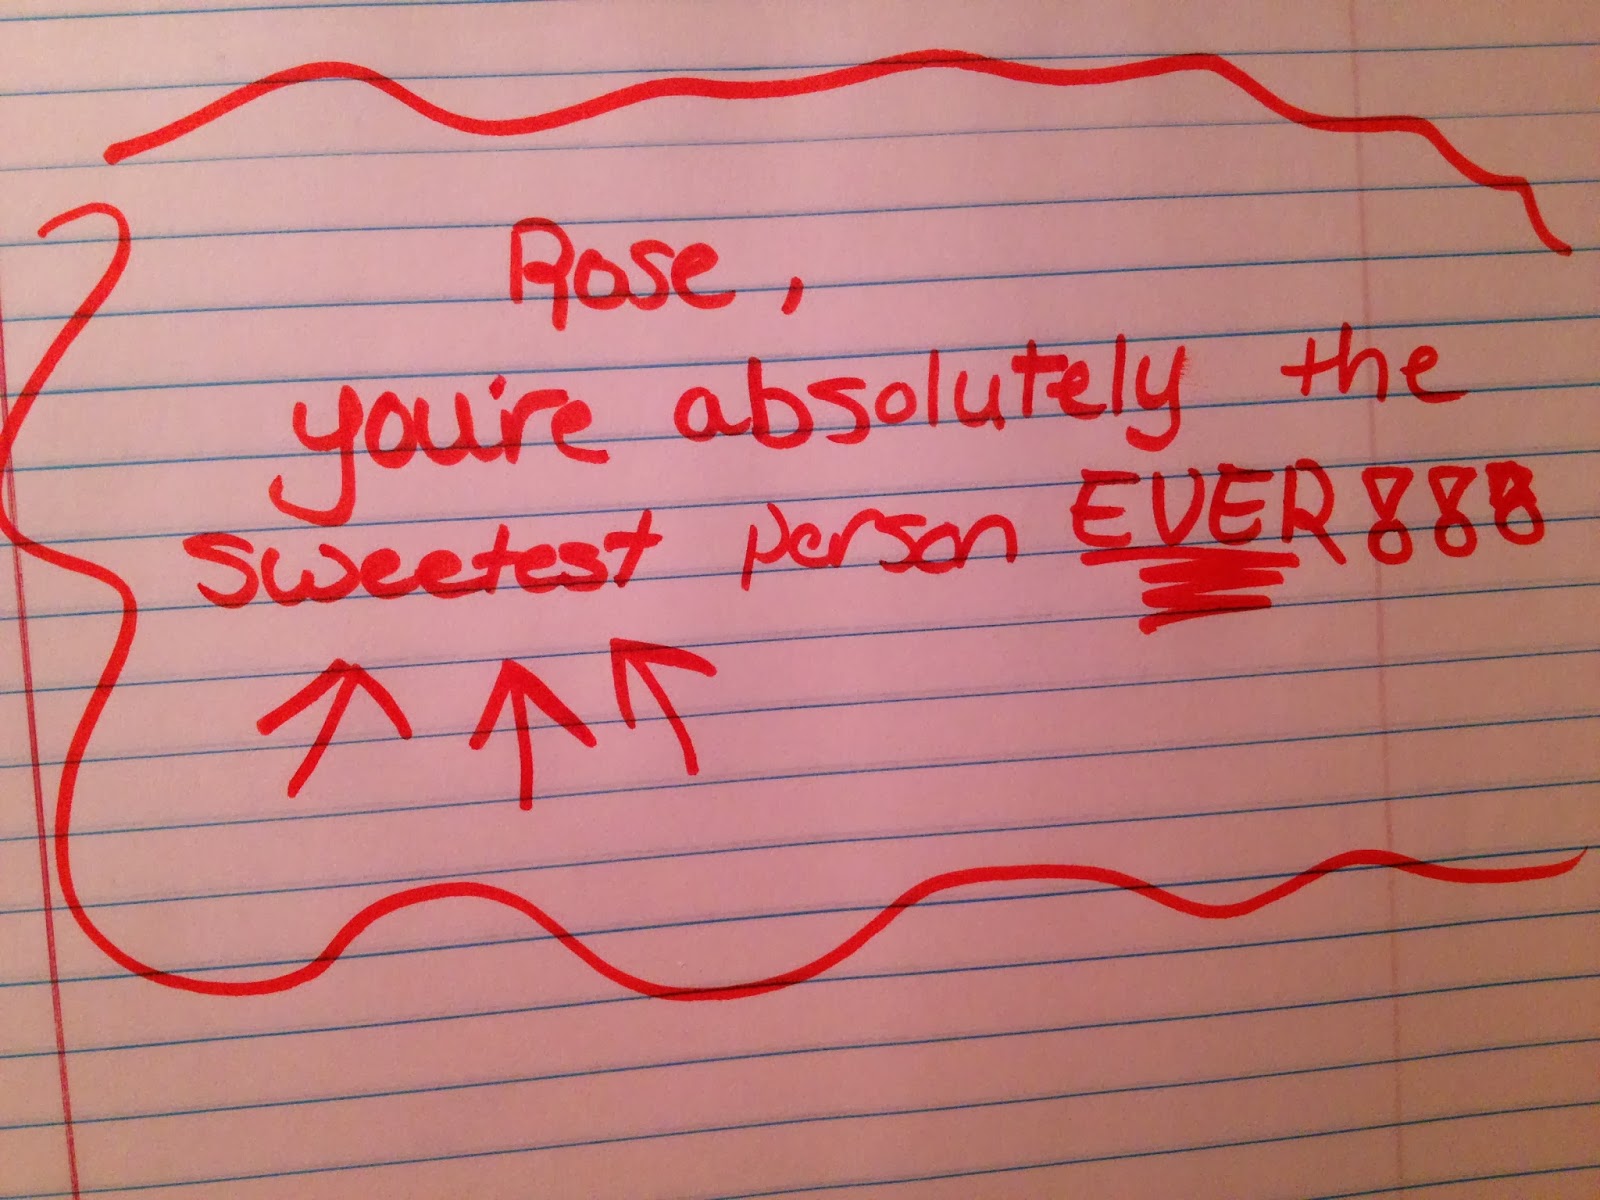 Rose,
you're absolutely the
sweetest person EVER!!!